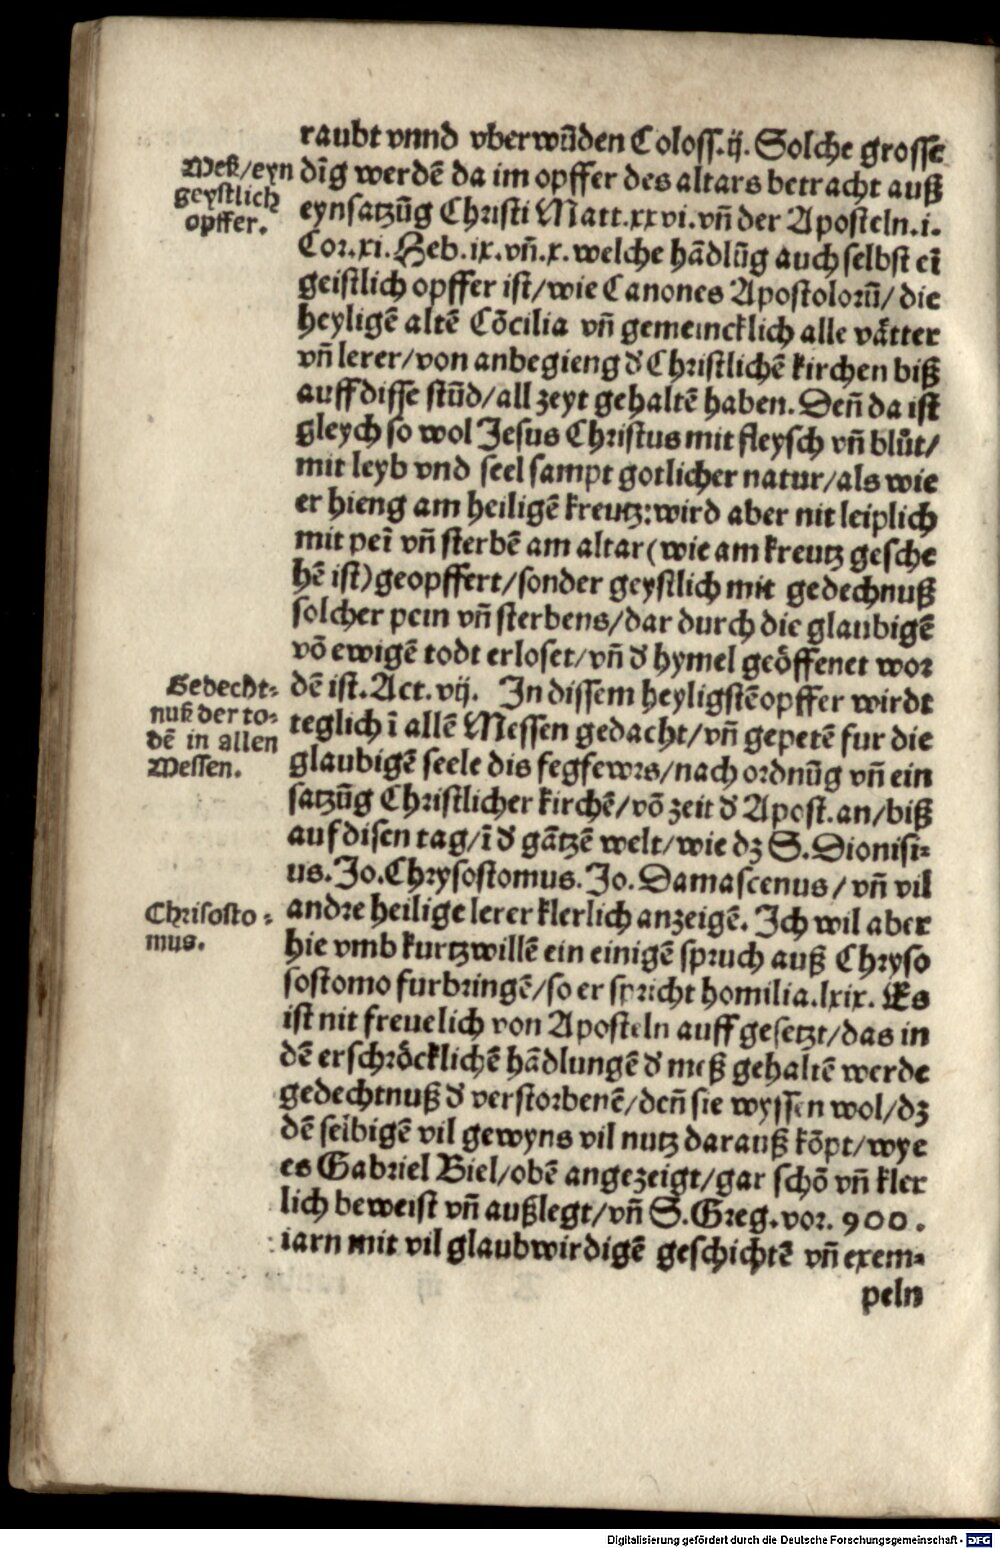 raubt vnnd vberwūden Coloss.ij. Solche grosse
Meß/eyn
geystlich
opffer.
dīg werdē da im opffer des altars betracht auß
eynsatzūg Christi Matt.xxvi.vn̄ der Aposteln.i.
Cor.xi.Heb.ix.vn̄.x.welche hādlūg auch selbst eī
geistlich opffer ist/wie Canones Apostolorū/die
heyligē altē Cōcilia vn̄ gemeincklich alle vätter
vn̄ lerer/von anbegieng đ Christlichē kirchen biß
auff disse stūd/all zeyt gehaltē haben. Den̄ da ist
gleych so wol Jesus Christus mit fleysch vn̄ blůt/
mit leyb vnd seel sampt gotlicher natur/als wie
er hieng am heiligē kreutz:wird aber nit leiplich
mit peī vn̄ sterbē am altar(wie am kreutz gesche
hē ist)geopffert/sonder geystlich mit gedechnuß
solcher pein vn̄ sterbens/dar durch die glaubigē
vō ewigē todt erloset/vn̄ đ hymel geöffenet wor
dē ist.Act.vij. In dissem heyligstē opffer wirdt
Gedecht-
nuß der to-
dē in allen
Messen.
teglich ī allē Messen gedacht/vn̄ gepetē fur die
glaubigē seele dis fegfewrs/nach ordnūg vn̄ ein
satzūg Christlicher kirchē/vō zeit đ Apost.an/biß
auf disen tag/ī đ gātzē welt/wie dz S.Dionisi-
us.Jo.Chrysostomus.Jo.Damascenus/vn̄ vil
Chrisosto-
mus.
andre heilige lerer klerlich anzeigē. Ich wil aber
hie vmb kurtzwillē ein einigē spruch auß Chryso
sostomo furbringē/so er spricht homilia.lxix. Es
ist nit freuelich von Aposteln auff gesetzt/das in
dē erschröcklichē hādlungē đ meß gehaltē werde
gedechtnuß đ verstorbenē/den̄ sie wyssen wol/dz
dē selbigē vil gewyns vil nutz darauß kōpt/wye
es Gabriel Biel/obē angezeigt/gar schō vn̄ kler
lich beweist vn̄ außlegt/vn̄ S.Greg.vor. 900.
iarn mit vil glaubwirdigē geschichtē vn̄ exem-
peln
Digitalisierung gefördert durch die Deutsche Forschungsgemeinschaft - DFG